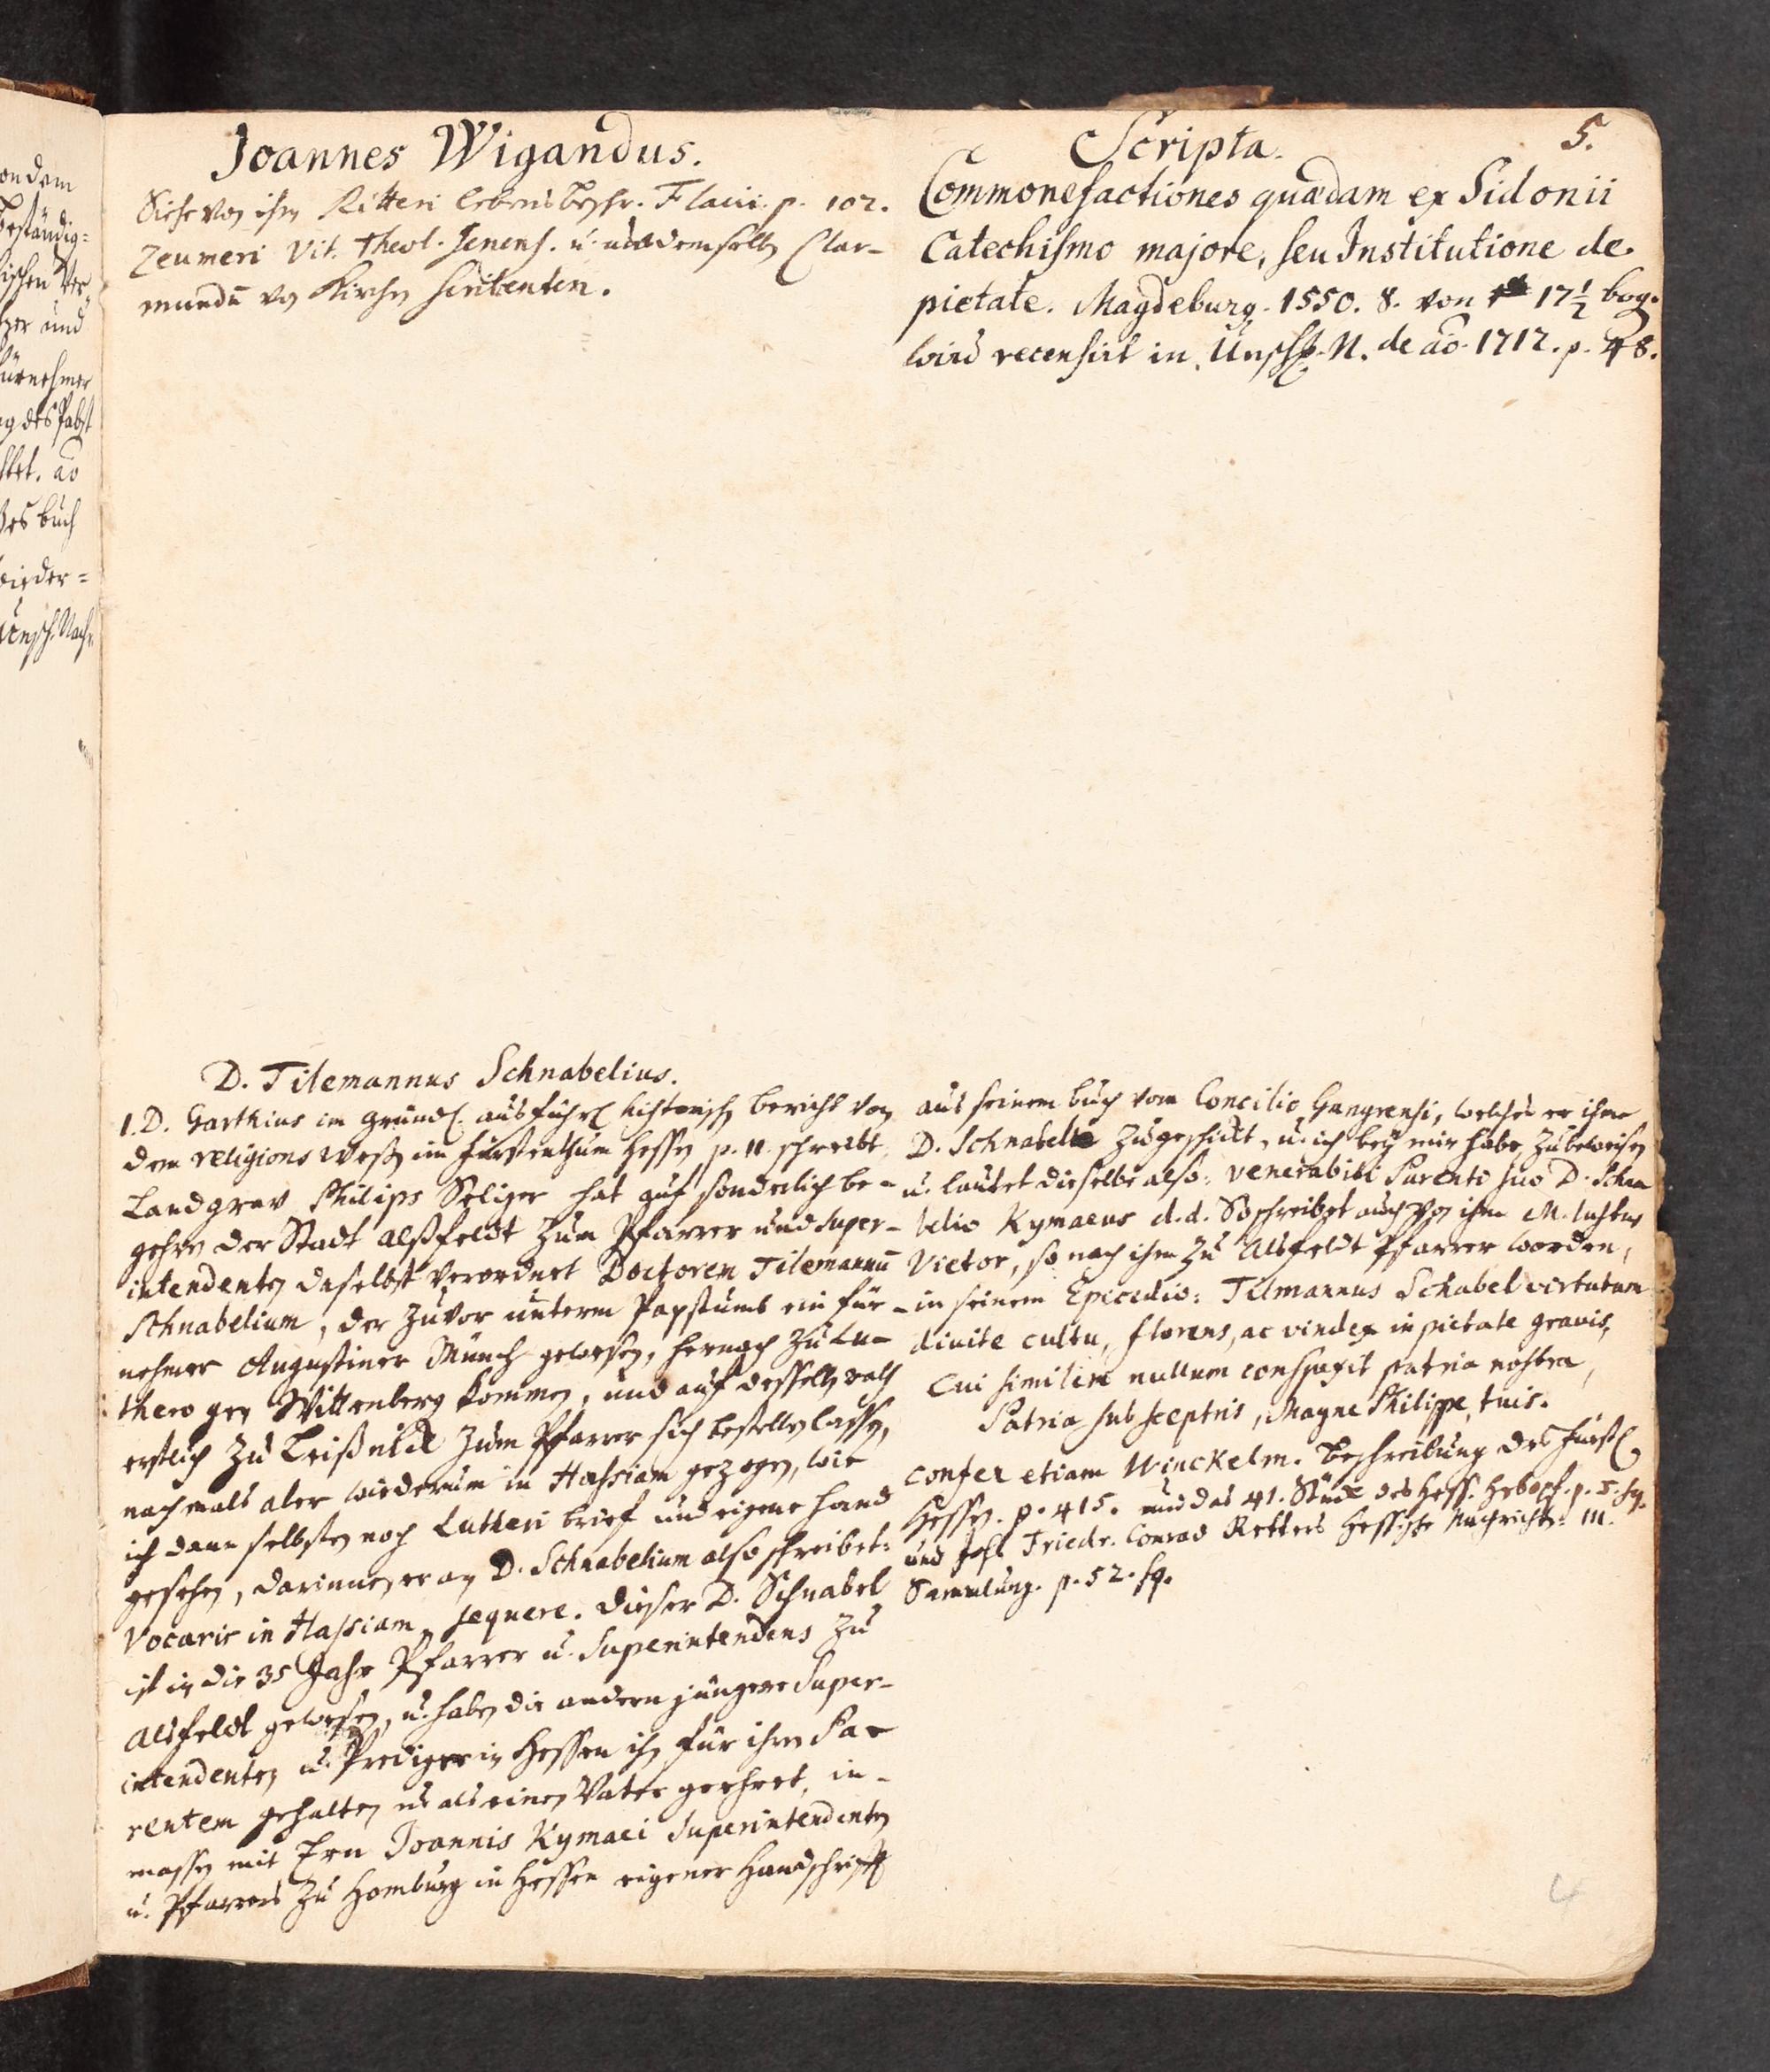 Joannes Wigandus.
Siehe von ihm Ritteri lebensbeschr. Flacii. p. 102.
Zeumeri Vit. Theol. Jenens. u. demselben Clar-
mundū von Kirchen Scribenten.
Scripta. 5.
Commonefactiones quædam ex Sidonii
Catechismo majore, seu Institutione de
pietate. Magdeburg. 1550. 8. von 17½ bog.
wird recensirt in Unsch. N. de aō. 1712. p. 48.
D. Tilemannus Schnabelius.
1. D. Garthius im gründl. ausführl historisch bericht von
dem religions wesen im fürstenthum Hessen p. 11. schreibt
Landgrav Philips Seliger hat auf sonderlich be-
gehren der Stadt Alßfeldt zum Pfarrer und super-
intendenten daselbst verordnet Doctorem Tilemannū
Schnabelium, der zuvor unterm Papstumb ein für-
nehmer Augustiner Münch gewesen, hernach zu Lu-
thero gen Wittenberg kommen, und auf desselben rath
erstlich zu Leißnick zum Pfarrer sich bestellen lassen,
nachmals aber wiederum in Hassiam gezogen, wie
ich dann selbsten noch Lutheri brief und eigene hand
gesehen, darinnen er an D. Schnabelium also schreibet:
Vocaris in Hassiam, sequere. dieser D. Schnabel
ist in die 35 Jahr Pfarrer u. Superintendens zu
Alsfeldt gewesen, u. haben die andern jüngere Super-
intendenten u. Prediger in Hessen ihn für ihren Pa-
rentem gehalten u. als einen Vater geehret, in-
massen mit Ern Joannis Kymaei Superintendenten
u. Pfarrers zu Homburg in Hessen eigener Handschrifft
aus seinem buch vom Concilio Gangrensi, welches er ihme
D. Schnabel zugeschickt, u. ich bey mir habe, zubeweisen
u. lautet dieselbe also: venerabili Parenti suo D. Schna
belio Kymaeus d. d. So schreibet auch von ihm M. Justus
Vietor, so nach ihm zu Alsfeldt Pfarrer worden,
in seinem Epicedio: Tilmannus Schabel virtutum
divite cultu, florens, ac vindex in pietate gravis,
Cui similem nullum conspexit patria nostra,
Patria sub sceptris, Magne Philippe, tuis.
confer etiam Winckelm. Beschreibung des fürstl
Hessen. p. 415. und das 41. Stück des Hess. Hebopf. p. 5. sq.
und Joh. Friedr. Conrad Retters Hessische Nachricht. III.
Sammlung. p. 52. sq.